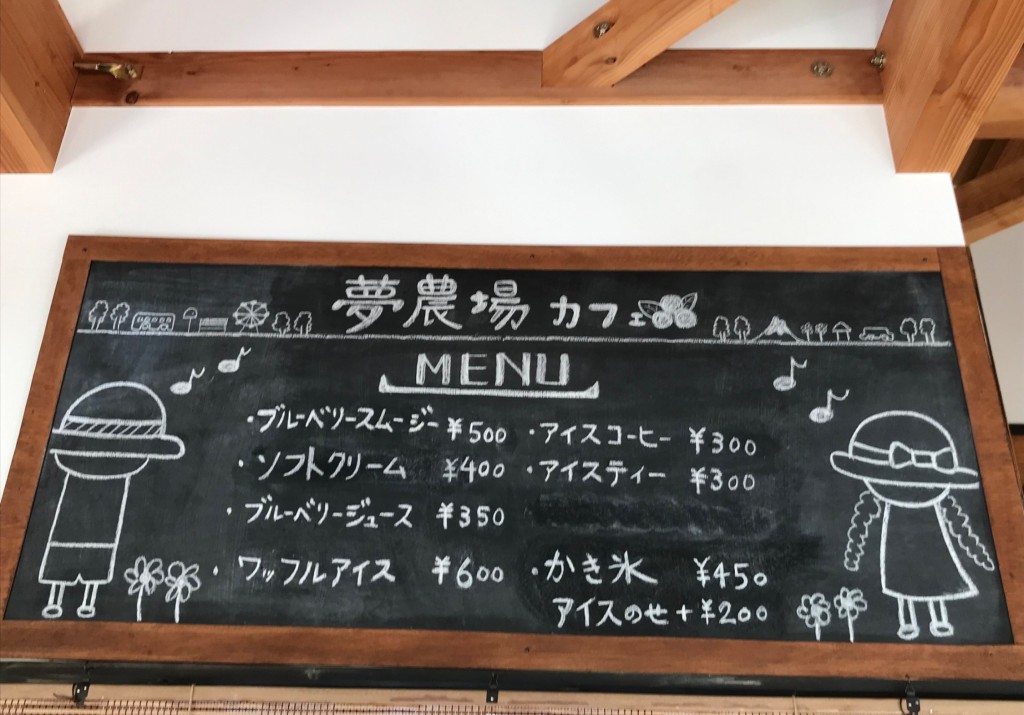 夢農場 カフェ
MENU
・ブルーベリースムージー ¥500
・ソフトクリーム ¥400
・ブルーベリージュース ¥350
・ワッフルアイス ¥600
・アイスコーヒー ¥300
・アイスティー ¥300
・かき氷 ¥450
アイスのせ+¥200